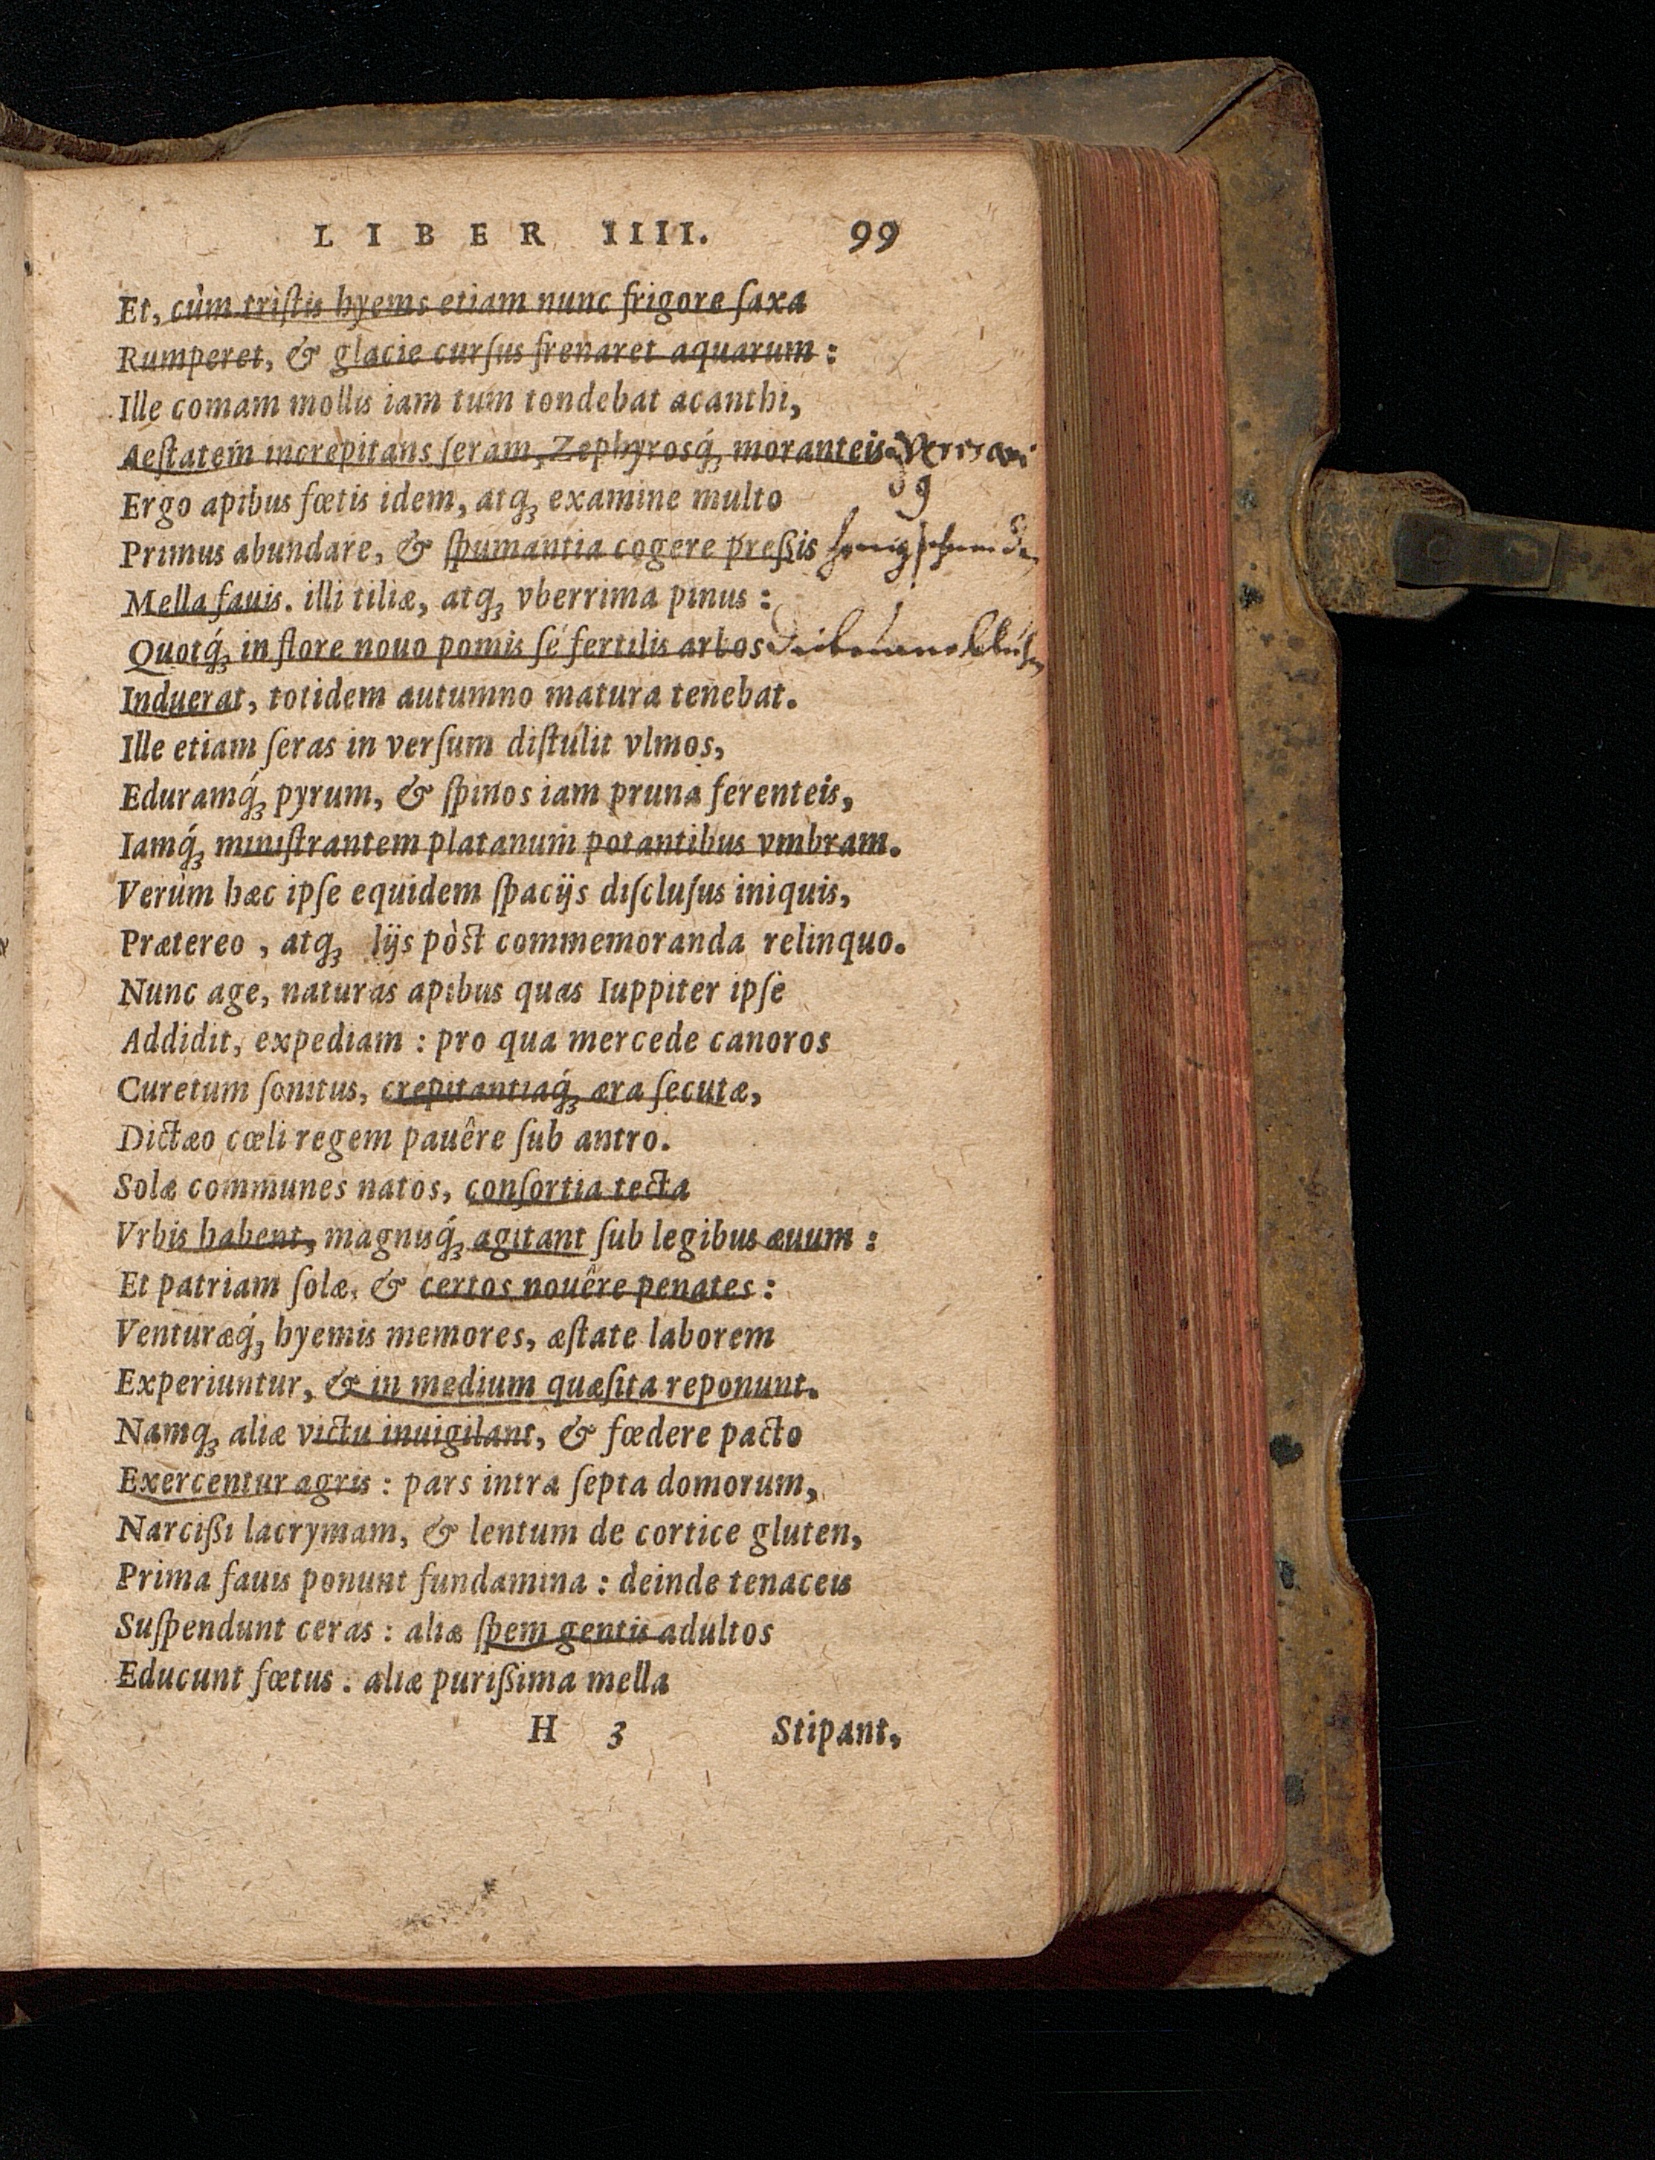 LIBER IIII. 99
Et, cùm tristis hyems etiam nunc frigore saxa
Rumperet, & glacie cursus frenaret aquarum:
Ille comam mollis iam tum tondebat acanthi,
Aestatem increpitans seram, Zephyrosq́; moranteis.
Ergo apibus fœtis idem, atq; examine multo
Primus abundare, & spumantia cogere preßis
Mella fauis. illi tiliæ, atq; vberrima pinus:
Quotq́; in flore nouo pomis se fertilis arbos
Induerat, totidem autumno matura tenebat.
Ille etiam seras in versum distulit vlmos,
Eduramq́; pyrum, & spinos iam pruna ferenteis,
Iamq́; ministrantem platanum potantibus vmbram.
Verùm hæc ipse equidem spacijs disclusus iniquis,
Prætereo, atq; lijs pòst commemoranda relinquo.
Nunc age, naturas apibus quas Iuppiter ipse
Addidit, expediam: pro qua mercede canoros
Curetum sonitus, crepitantiaq́; æra secutæ,
Dictæo cœli regem pauêre sub antro.
Solæ communes natos, consortia tecta
Vrbis habent, magnisq́; agitant sub legibus æuum:
Et patriam solæ, & certos nouêre penates:
Venturæq́; hyemis memores, æstate laborem
Experiuntur, & in medium quæsita reponunt.
Namq; aliæ victu inuigilant, & fœdere pacto
Exercentur agris: pars intra septa domorum,
Narcißi lacrymam, & lentum de cortice gluten,
Prima fauis ponunt fundamina: deinde tenaceis
Suspendunt ceras: aliæ spem gentis adultos
Educunt fœtus. aliæ purißima mella
H 3 Stipant,